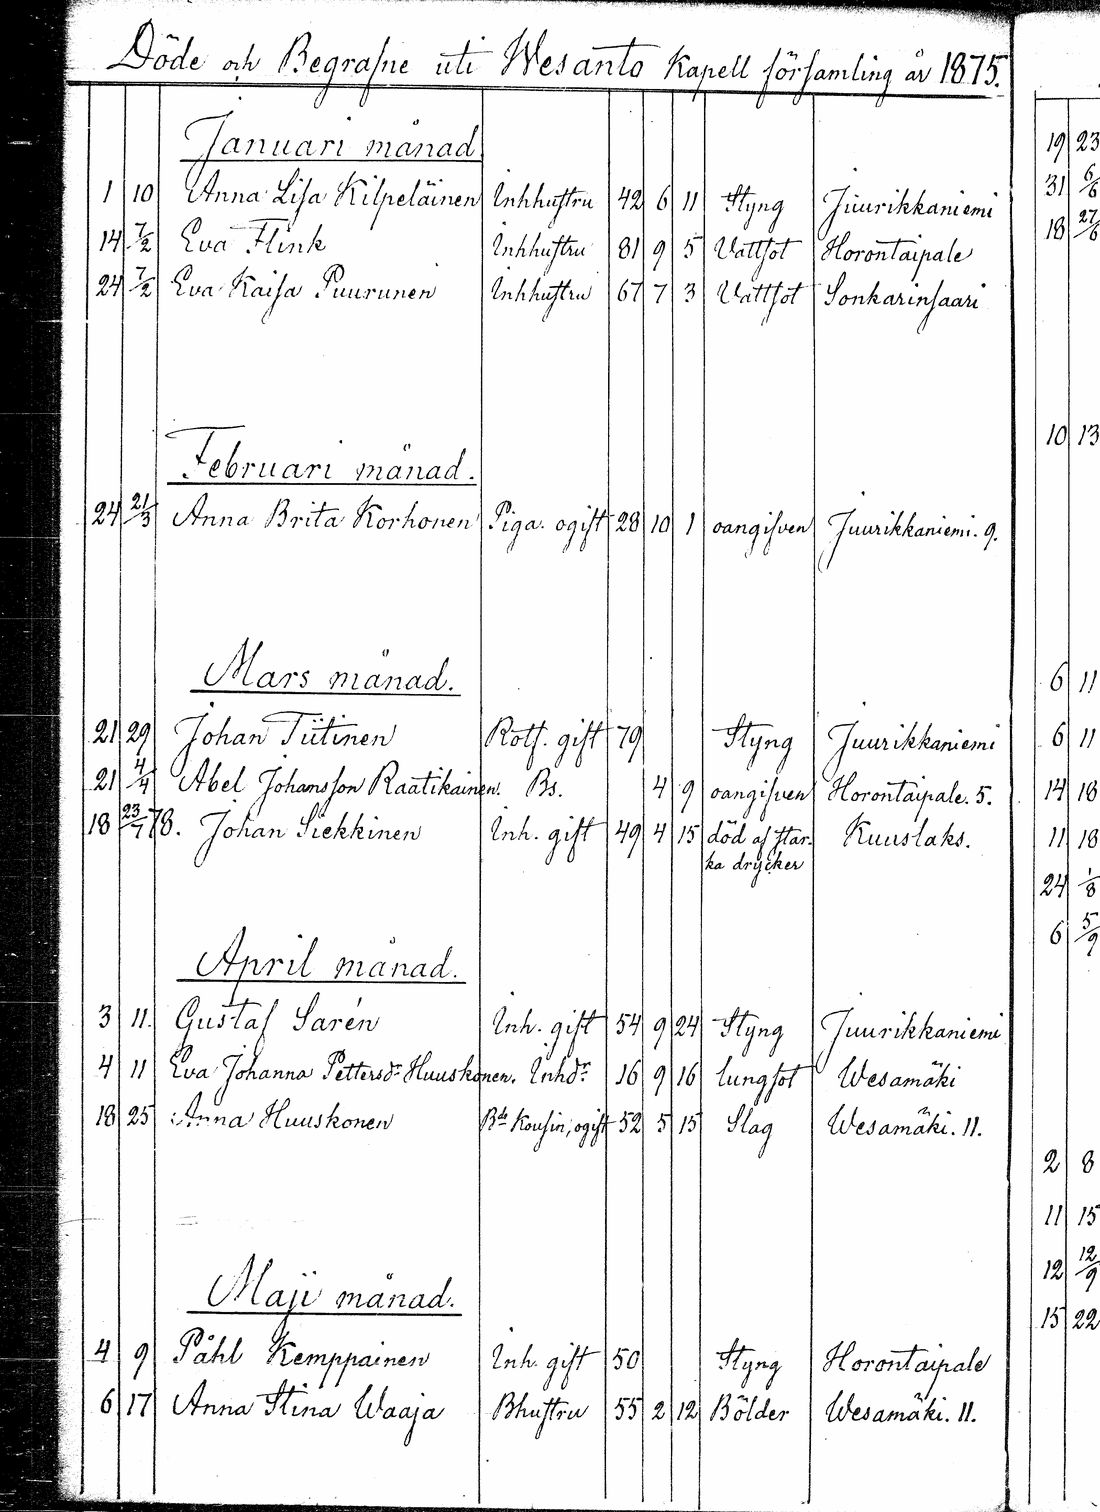 Döde och Begrafne uti Wesanto Kapell församling år 1875.
Januari månad
1 10 Anna Lisa Kilpeläinen Inhhustru 42 6 11 Styng Juurikkaniemi
14 7/2 Eva Flink Inhhustru 81 9 5 Vattsot Horontaipale
24 7/2 Eva Kaisa Puurunen Inhhustru 67 7 3 Vattsot Sonkarinsaari
Februari månad.
24 21/3 Anna Brita Korhonen Piga. ogift 28 10 1 oangifven Juurikkaniemi. 9.
Mars månad.
21 29 Johan Tiitinen Rotf. gift 79 Styng Juurikkaniemi
21 4/4 Abel Johansson Raatikainen. Bs. 4 9 oangifven Horontaipale. 5.
18 23/7 78. Johan Siekkinen Inh. gift 49 4 15 död af star- Kuuslaks.
ka drycker
April månad.
3 11. Gustaf Sarén Inh. gift 54 9 24 Styng Juurikkaniemi
4 11 Eva Johanna Pettersdr Huuskonen. Inhdr 16 9 16 lungsot Wesamäki
18 25 Anna Huuskonen Bds Kousin, ogift 52 5 15 Slag Wesamäki. 11.
Maji månad.
4 9 Påhl Kemppainen Inh. gift 50 Styng Horontaipale
6 17 Anna Stina Waaja Bhustru 55 2 12 Bölder Wesamäki. 11.
19 23
31 6/6
18 27/6
10 13
6 11
6 11
14 18
11 18
24 1/8
6 5/9
2 8
11 15
12 12/9
15 22